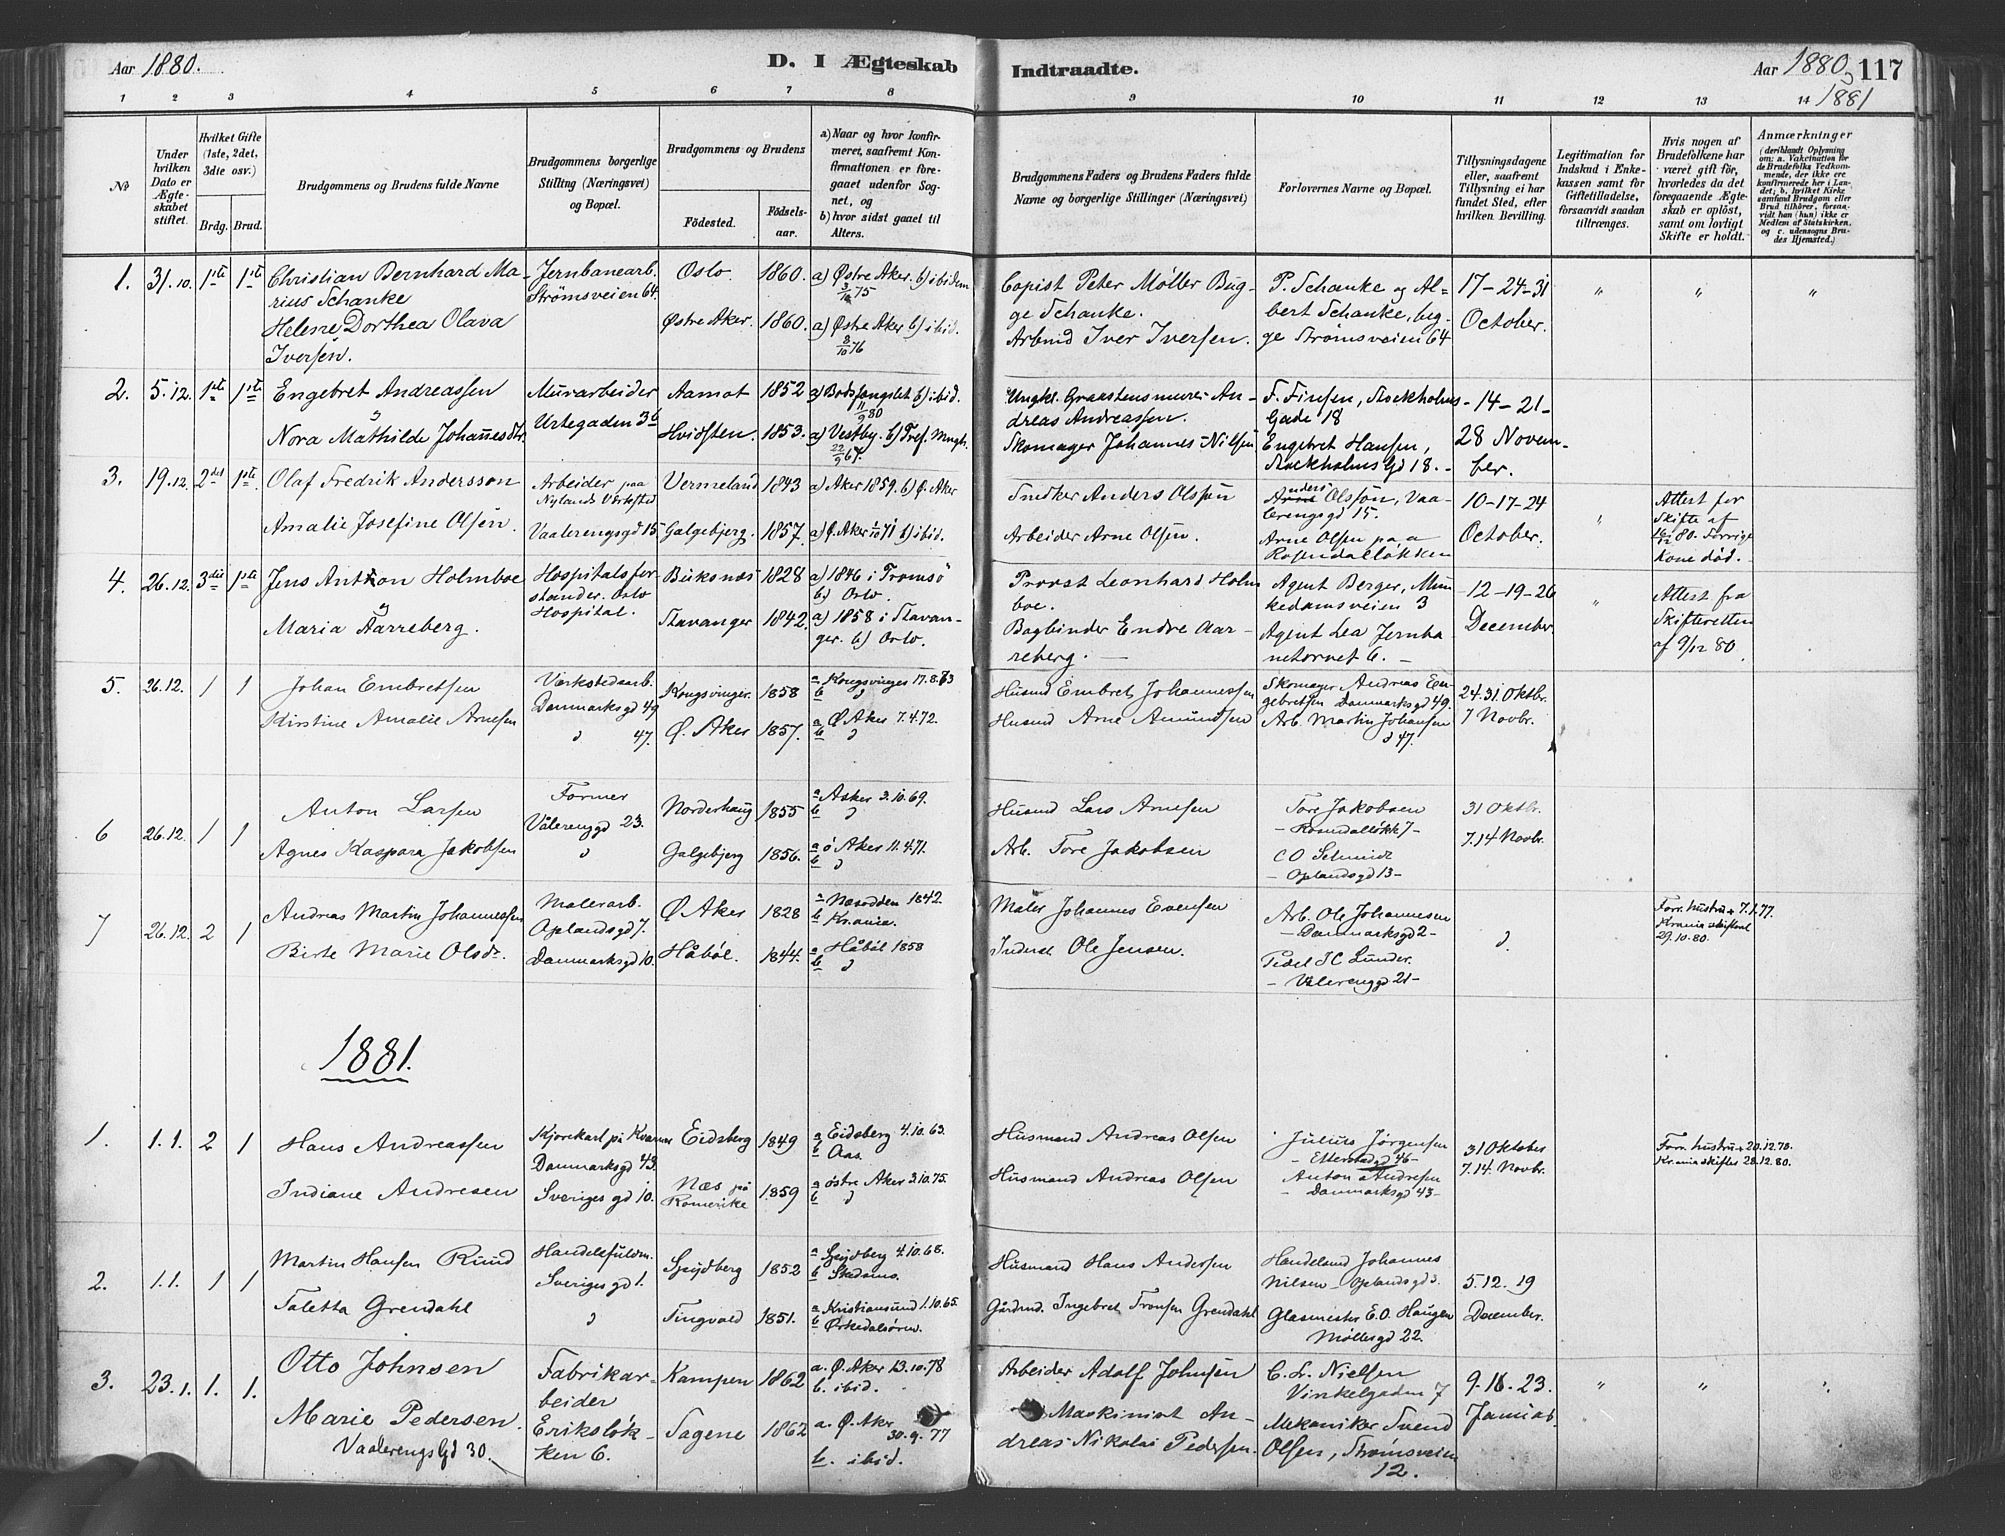 Aar 1880.
D. I Ægteskab
Indtraadte.
Aar 1880 og 1881
117
1 2 3 4 5 6 7 8 9 10 11 12 13 14
No
Under hvilken Dato er Ægteskabet stiftet.
Hvilket Gifte (1ste, 2det, 3die osv.)
Brdg. Brud.
Brudgommens og Brudens fulde Navne
Brudgommens borgerlige Stilling (Næringsvei) og Bopæl.
Brudgommens og Brudens
Fødested.
Fødselsaar.
a) Naar og hvor konfirmeret, saafremt Konfirmationen er foregaaet udenfor Sognet, og
b) hvor sidst gaaet til Alters.
Brudgommens Faders og Brudens Faders fulde Navne og borgerlige Stillinger (Næringsvei)
Forlovernes Navne og Bopæl.
Tillysningsdagene eller, saafremt Tillysning ei har fundet Sted, efter hvilken Bevilling.
Legitimation for Indskud i Enkekassen samt for Giftetilladelse, forsaavidt saadan tiltrænges.
Hvis nogen af Brudefolkene har været gift før, hvorledes da det foregaaende Ægteskab er opløst, samt om lovligt Skifte er holdt.
Anmærkninger (deriblandt Oplysning om: a. Vakcination for de Brudefolks Vedkommende, der ikke ere konfirmerede her i Landet; b. hvilket Kirkesamfund Brudgom eller Brud tilhører, forsaavidt han (hun) ikke er Medlem af Statskirken, og c. udensogns Brudes Hjemsted.)
1. 31.10. 1ste 1ste Christian Bernhard Marius Schanke Jernbanearb. Strømsveien 64. Oslo 1860. a) Østre Aker. b) ibidem 3/10 75 Copist Peter Møller Bugge Schanke. P. Schanke og Albert Schanke, begge Strømsveien 64 17-24-31 October. " " "
Helene Dorthea Olava Iversen. Østre Aker. 1860. a) Østre Aker b) ibid. 8/10 76 Arbmd Iver Iversen.
2. 5.12. 1ste 1ste Engebret Andreassen Murarbeider Urtegaden 36 Aamot 1852 a) Bodsfængslet b) ibid. 11/9 80 Ungkl. Graastensmurer Andreas Andreassen. F. Finsen, Stockholms Gade 18 -14-21-28 November.
og Nora Mathilde Johannesdtr. Hvidsten. 1853. a) Vestby. b) Tref. Mngh. 22/9 67. Skomager Johannes Nilsen Engebret Hansen, Stockholms Gd 18.
3. 19.12. 2det 1ste Olaf Fredrik Andersson Arbeider paa Nylands Værksted Vermeland 1843 a) Aker 1859. b) Ø. Aker Snedker Anders Olsson Anders Olsson, Vaalerengsgd 15. 10-17-24 October. " Attest for Skifte af 16/12 80. Forrige Kone død.
Amalie Josefine Olsen. Vaalerengsgd 15 Galgebjerg. 1857. a) Ø. Aker 1/10 71 b) ibid. Arbeider Arne Olsen. Arne Olsen paa Rosendalløkken
4. 26.12. 3die 1ste Jens Anton Holmboe Hospitalsforstander. Oslo Hospital. Buksnæs 1828 a) 1846 i Tromsö b) Oslo. Provst Leonhard Holmboe. Agent Berger, Munkedamsveien 3 -12-19-26 December. " Attest fra Skifteretten af 9/12 80.
og Maria Aarreberg. Stavanger 1842. a) 1858 i Stavanger. b) Oslo. Bogbinder Endre Aarreberg. Agent Lea Jernbanetorvet 6.
5. 26.12. 1 1 Johan Embretsen Værkstedsarb. Danmarksgd 49 Kongsvinger. 1858 a Kongsvinger 17.8.73 b " Husmd Embret Johannessen Skomager Andreas Engebretsen Danmarksgd 49. 24.31. Oktbr. 7 Novbr.
Kirstine Amalie Arnesen " 47. Ø. Aker 1857. a Ø Aker 7.4.72. b " Husmd Arne Amundsen Arb. Martin Johansen " 47.
6 26.12. 1 1 Anton Larsen Former Vålerenggd 23. Norderhaug 1855 a Asker 3.10.69. b " Husmd Lars Arnesen Tore Jakobsen -Rosendalløkk 7- 31 Oktbr. 7.14 Novbr.
Agnes Kaspara Jakobsen " Galgebjerg 1856. a ø Aker 11.4.71. b " Arb. Tore Jakobsen C O Schmidt -Oplandsgd 13-
7 26.12. 2 1 Andreas Martin Johannessen Malerarb. Oplandsgd 7. Ø Aker 1828 a Næsodden 1842. b Krania. Maler Johannes Evensen Arb. Ole Johannesen -Danmarksgd 2- " Forr. hustru + 7.1.77. Krania skifteret 29.10.80.
Birte Marie Olsdr. Danmarksgd 10. Håböl. 1844. a Håböl 1858 b " Inderst Ole Jensen. Pedel J C Lunder. -Vålerenggd 21-
1881.
1. 1.1. 2 1 Hans Andreassen Kjørekarl på Kværner Danmarksgd 43. Eidsberg 1849 a Eidsberg 4.10.63. b Aas. Husmand Andreas Olsen Julius Jørgensen -Etterstadgd 46- 31 Oktober 7.14 Novbr. Forr. hustru + 20.12.78. Krania skifter. 28.12.80.
Indiane Andresen Sveriges gd 10. Næs på Romerike 1859 a østre Aker 3.10.75. b " Husmand Andreas Olsen Anton Andresen -Danmarksgd 43-
2. 1.1. 1 1 Martin Hansen Ruud Handelsfuldm. Sveriges gd 1. Spydberg 1852 a Spydberg 4.10.68. b Skedsmo. Husmand Hans Andersen Handelsmd Johannes Nilsen Oplandsgd 3. 5.12.19 December.
Taletta Grendahl " Tingvold 1851. a Kristiansund 1.10.65. b Orkedalsören. Gårdmd. Ingebret Tronsen Grendahl Glasmester E. O. Haugen Møllergd 22.
3. 23.1. 1. 1. Otto Johnsen Fabrikarbeider Erikslökken 6. Kampen 1862 a. Ø. Aker 13.10.78 b. ibid. Arbeider Adolf Johnsen C. L. Nielsen Vinkelgaden 7 9.16.23. Januar. " " "
Marie Pedersen. Vaalerengs Gd 30. Sagene 1862 a. Ø. Aker 30.9.77 b. ibid. Maskinist Andreas Nikolai Pedersen. Mekaniker Svend Olsen, Strømsveien 12.